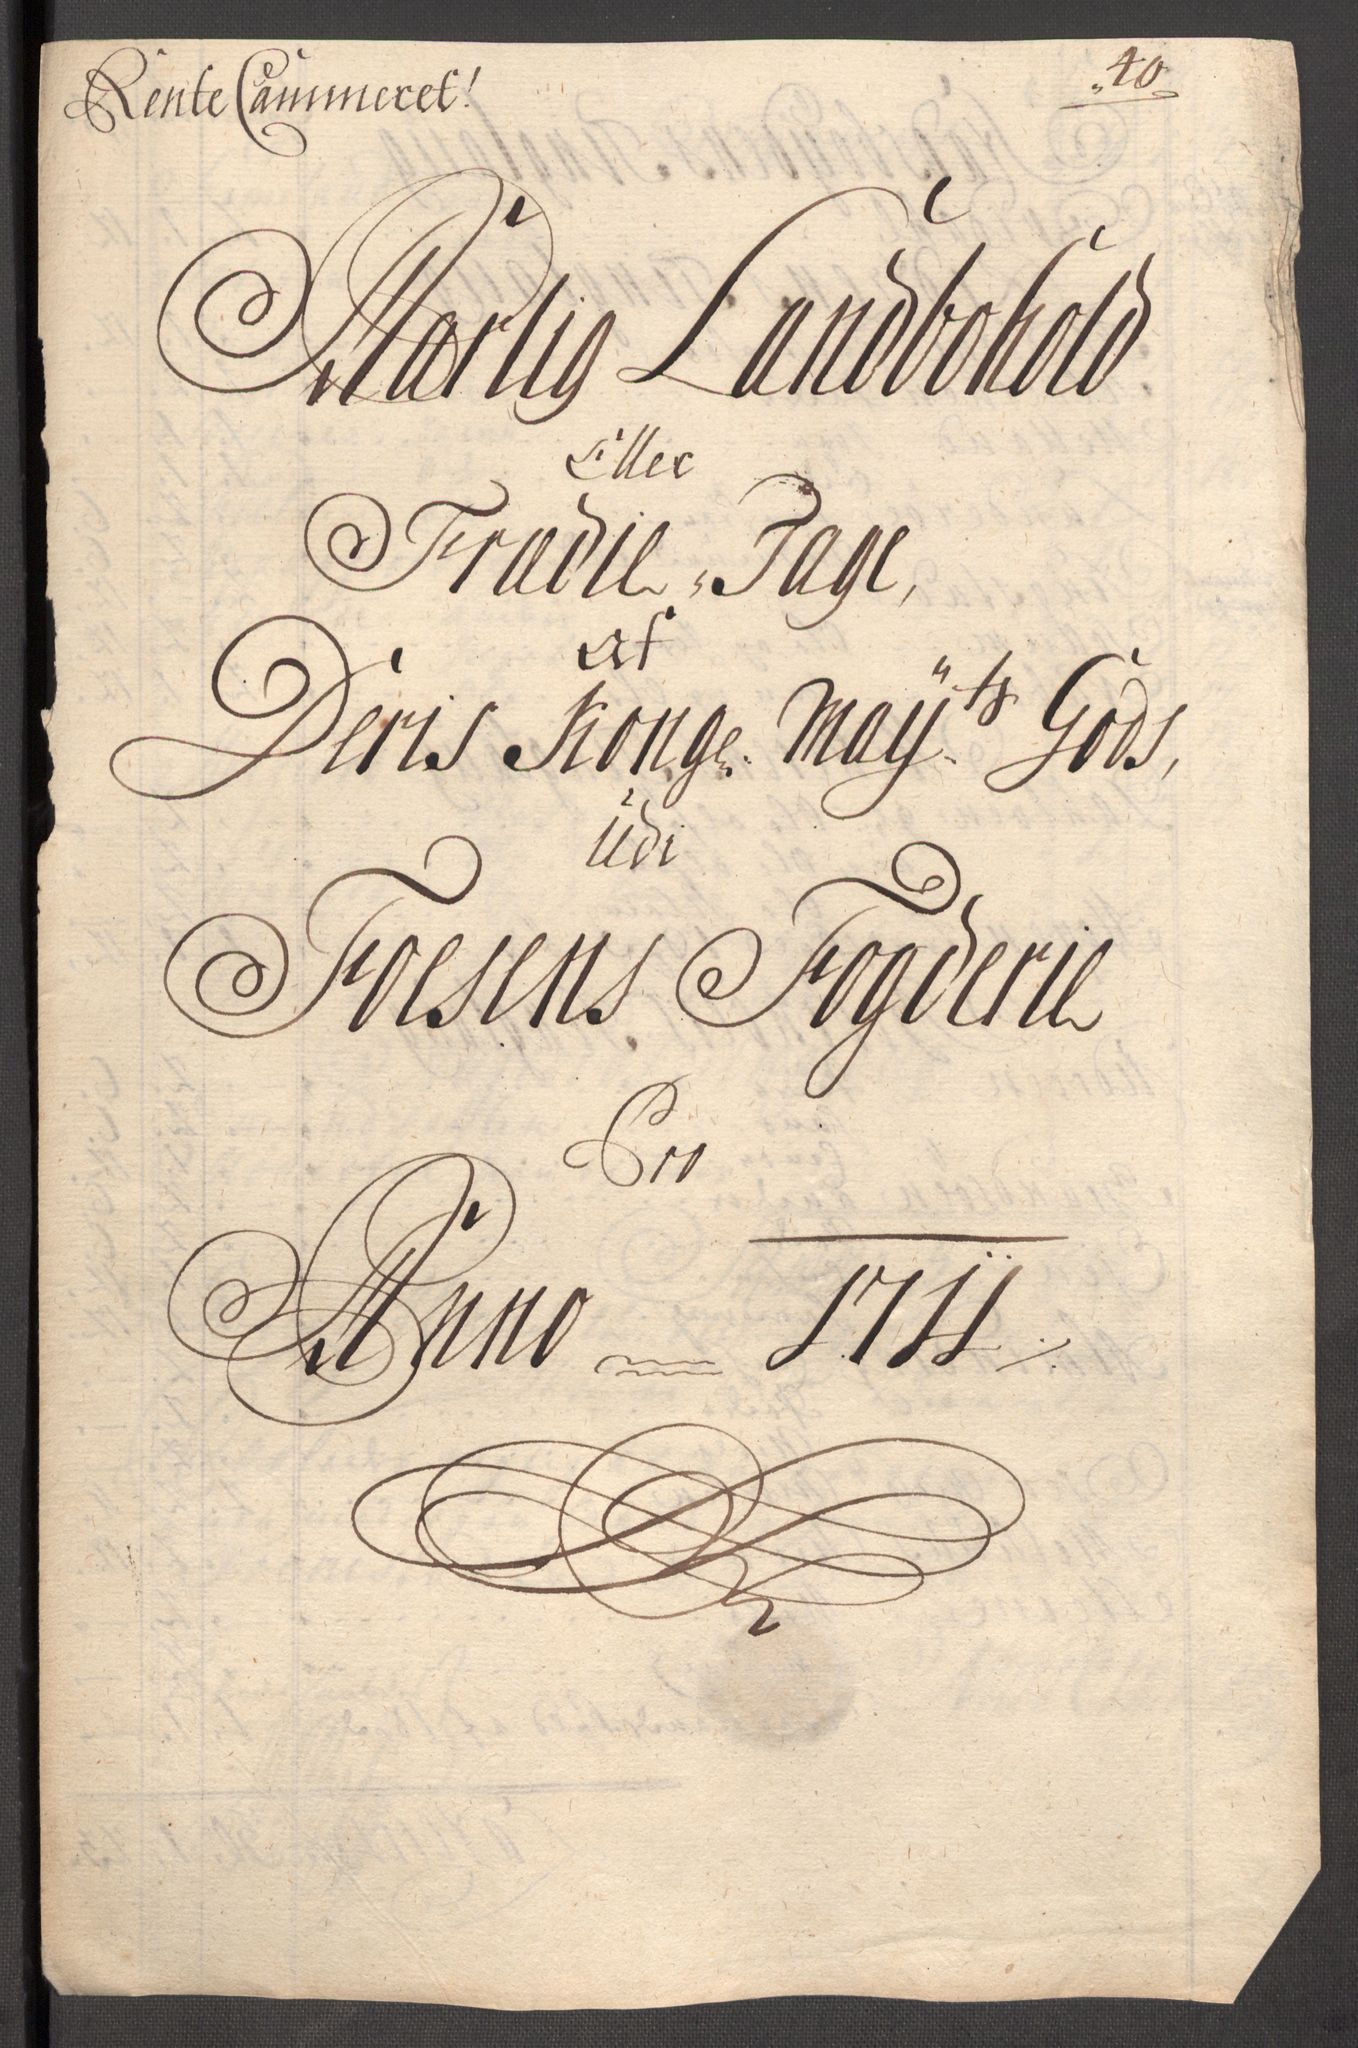 Rente Cammeret!
40
Aarlig Landbohold
Eller
Trædie Tage,
Af
Deris Konge. Mayts Gods,
Udi
Foesens Fogderie
Pro
Anno 1711.